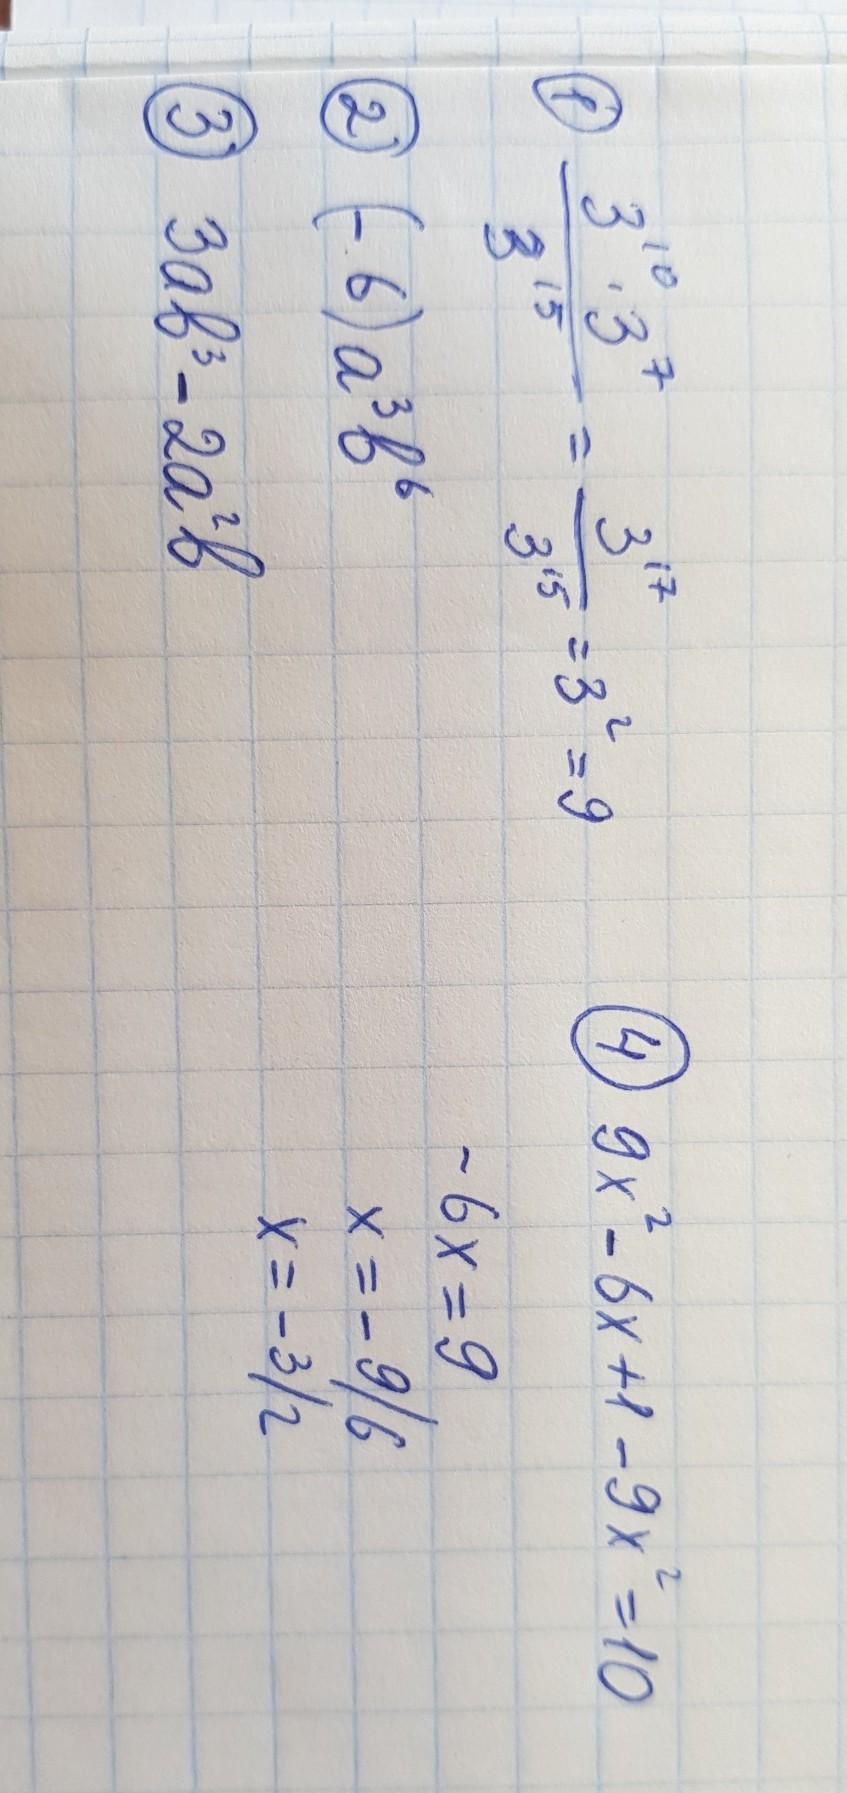 ① 3¹⁰ · 3⁷ / 3¹⁵ = 3¹⁷ / 3¹⁵ = 3² = 9
② (-6)a³b⁶
③ 3ab³ - 2a²b
④ 9x² - 6x + 1 - 9x² = 10
-6x = 9
x = -9/6
x = -3/2